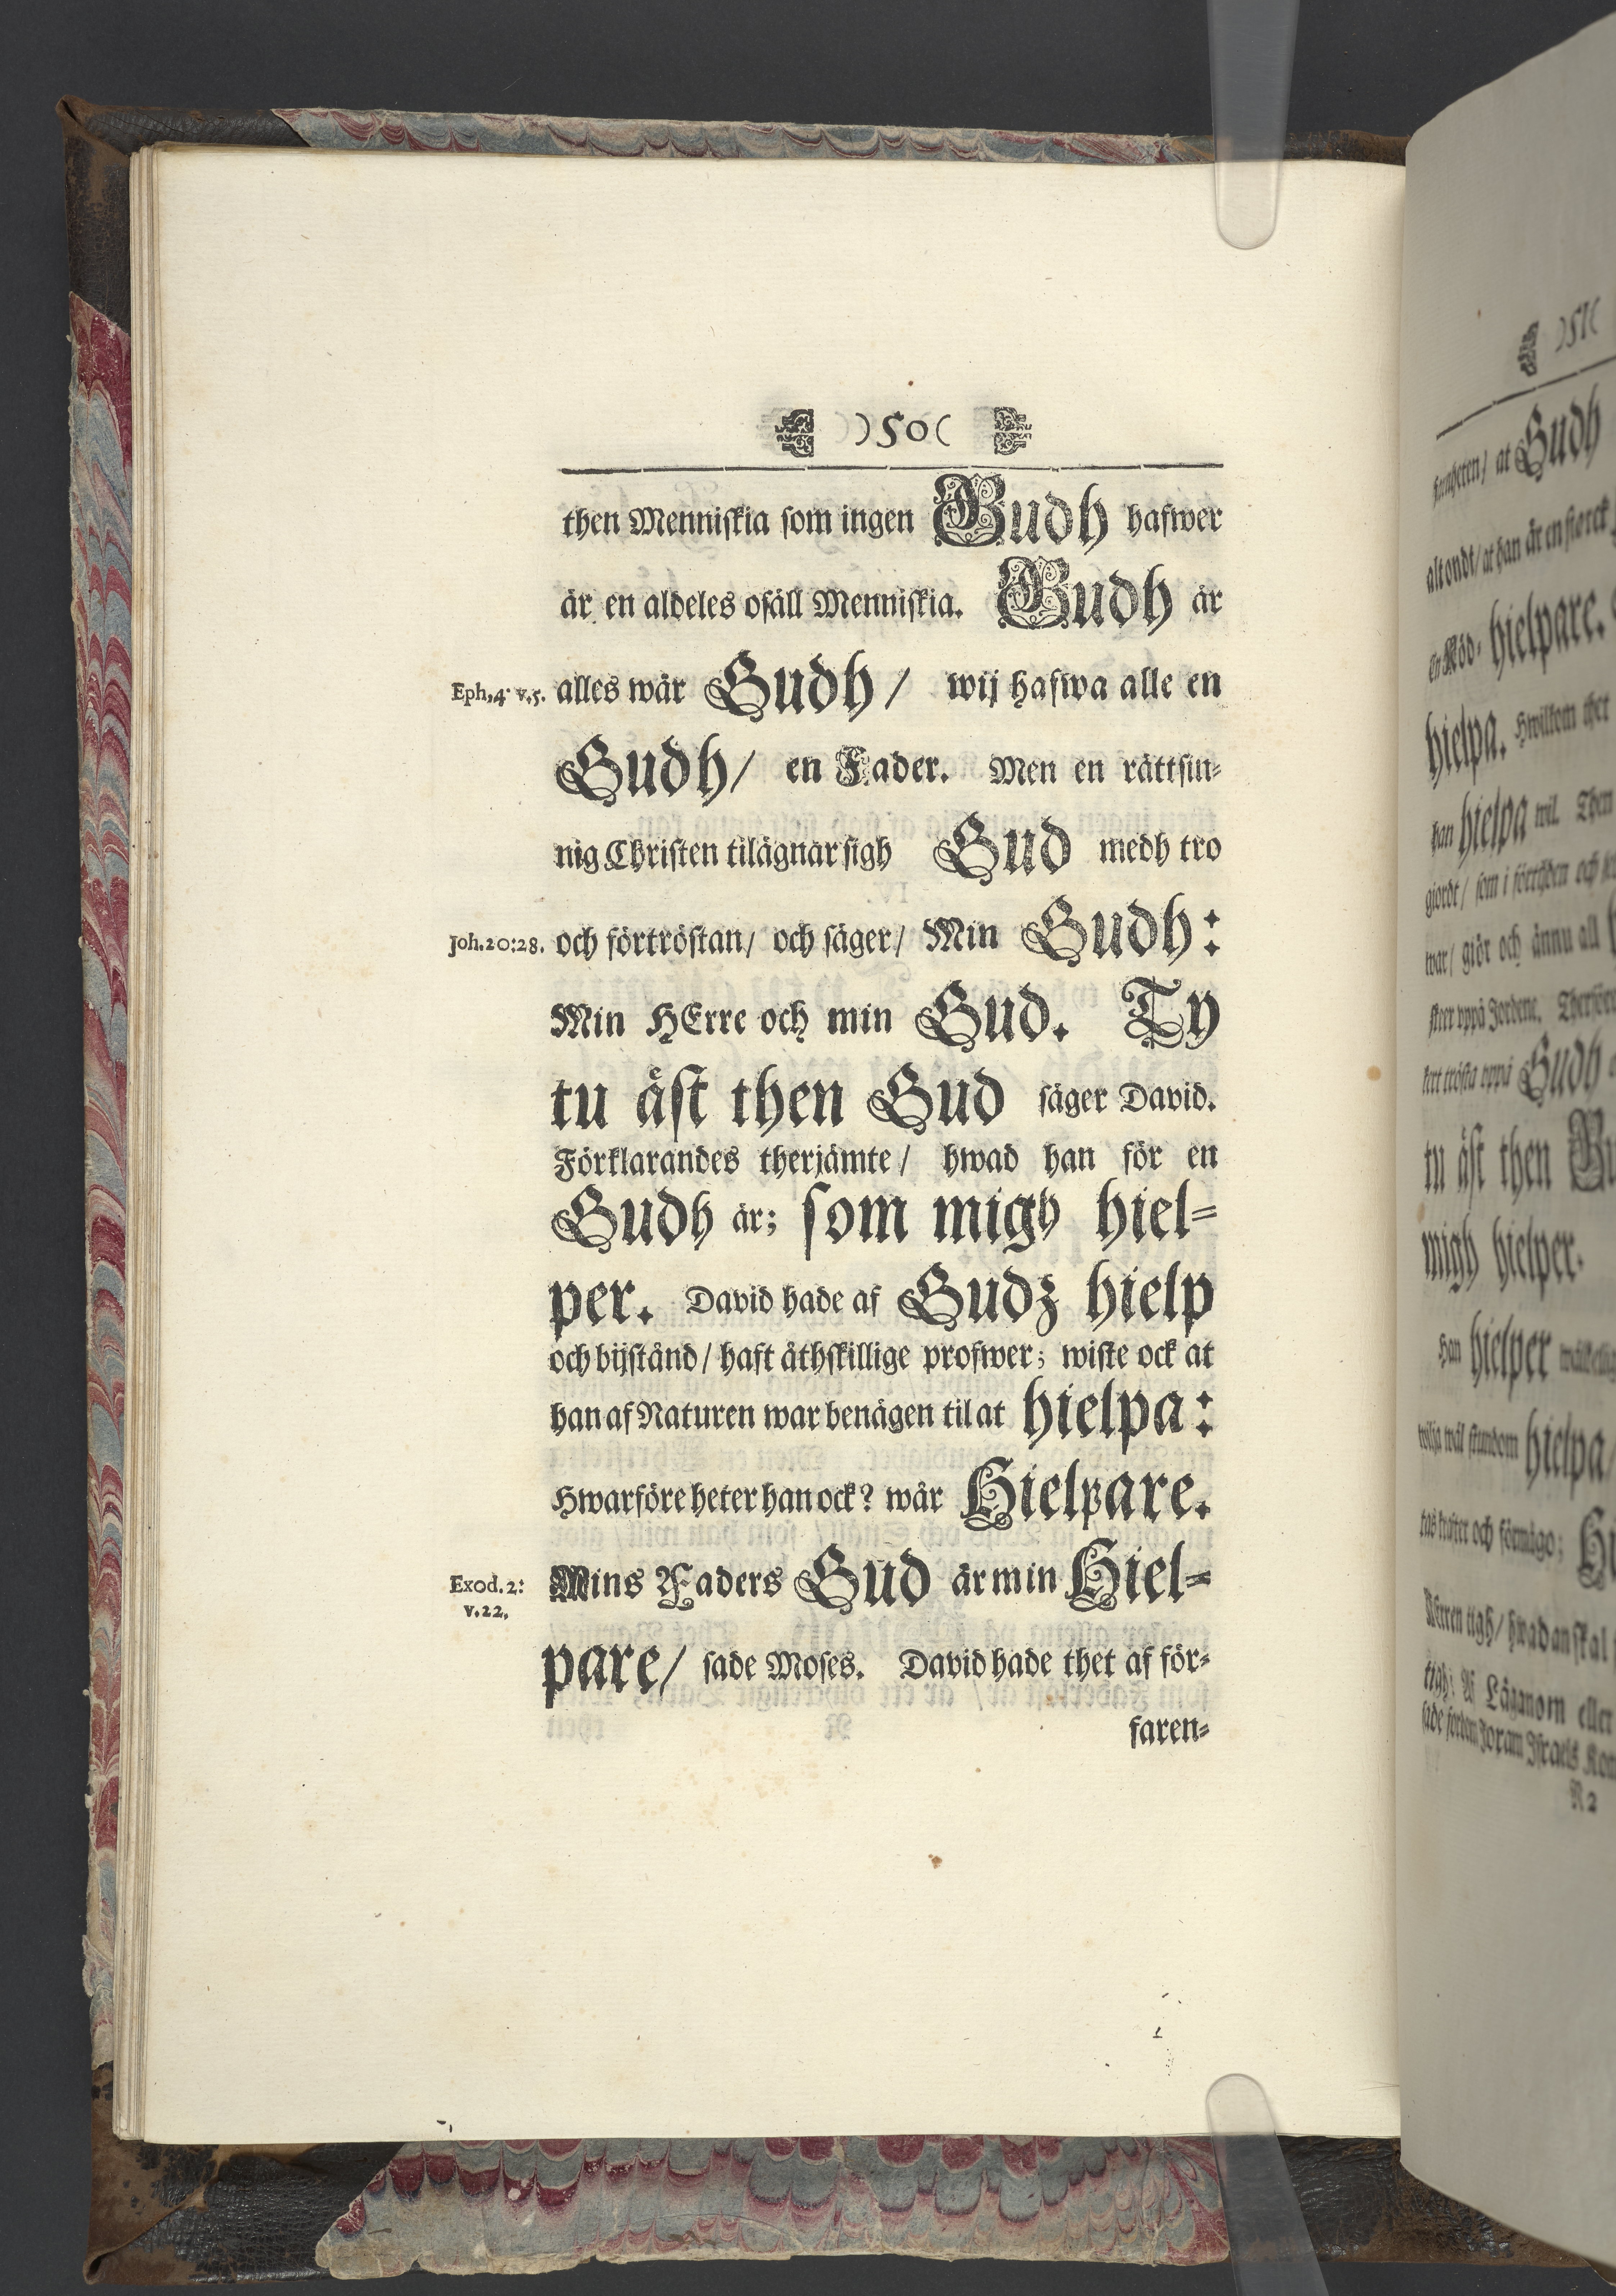 )50(
then Menniskia som ingen Gudh hafwer
är en aldeles osäll Menniskia. Gudh är
Eph.4. v.5. alles wår Gudh / wij hafwa alle en
Gudh / en Fader. Men en rättsin-
nig Christen tilägnar sigh Gud medh tro
Joh.20:28. och förtröstan / och säger / Min Gudh:
Min HErre och min Gud. Ty
tu äst then Gud säger David.
Förklarandes therjämte / hwad han för en
Gudh är; som migh hiel-
per. David hade af Gudz hielp
och bijstånd / haft åthskillige profwer; wiste ock at
han af Naturen war benägen til at hielpa:
Hwarföre heter han ock? wår Hielpare.
Exod.2: v.22. Mins Faders Gud är min Hiel-
pare / sade Moses. David hade thet af för-
faren-
)51(
at Gudh
alt ondt / at han är en sterck
en Nöd- hielpare.
hielpa. Hwilkom ther
han hielpa wil. Then
giordt / som i förtijden och
war / giör och ännu all
sker uppå Jordene. Therföre
trösta uppå Gudh
tu äst then
migh hielper.
Han hielper
wilja wäl stundom hielpa
och förmågo;
HErren tigh / hwadan skal
tigh: Af Läganom eller
sade fordom Joram Israels
N 2